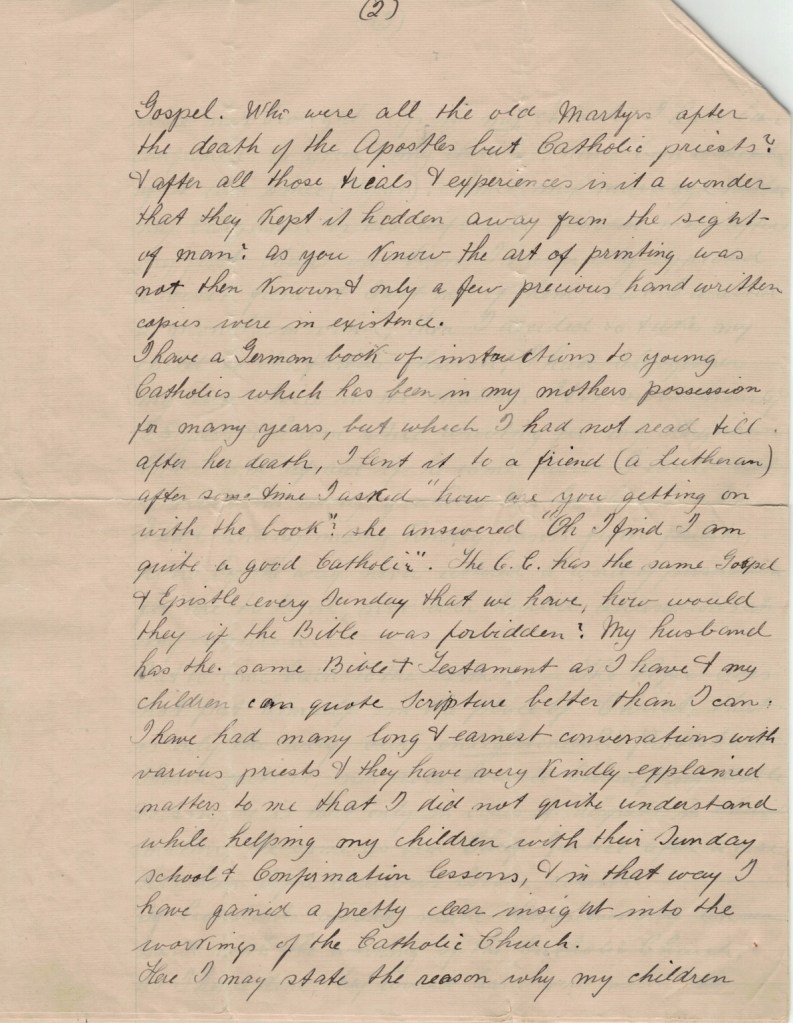 (2)
Gospel. Who were all the old Martyrs after
the death of the Apostles but Catholic priests?
& after all those trials & experiences is it a wonder
that they kept it hidden away from the sight
of man? as you know the art of printing was
not then known & only a few precious hand written
copies were in existence.
I have a German book of instructions to young
Catholics which has been in my mothers possession
for many years, but which I had not read till
after her death, I lent it to a friend (a Lutheran)
after some time I asked "how are you getting on
with the book"? she answered "Oh I find I am
quite a good Catholic". The C. C. has the same Gospel
& Epistle every Sunday that we have, how would
they if the Bible was forbidden? My husband
has the same Bible & Testament as I have & my
children can quote Scripture better than I can.
I have had many long & earnest conversations with
various priests & they have very kindly explained
matters to me that I did not quite understand
while helping my children with their Sunday
school & Confirmation lessons, & in that way I
have gained a pretty clear insight into the
workings of the Catholic Church.
Here I may state the reason why my children